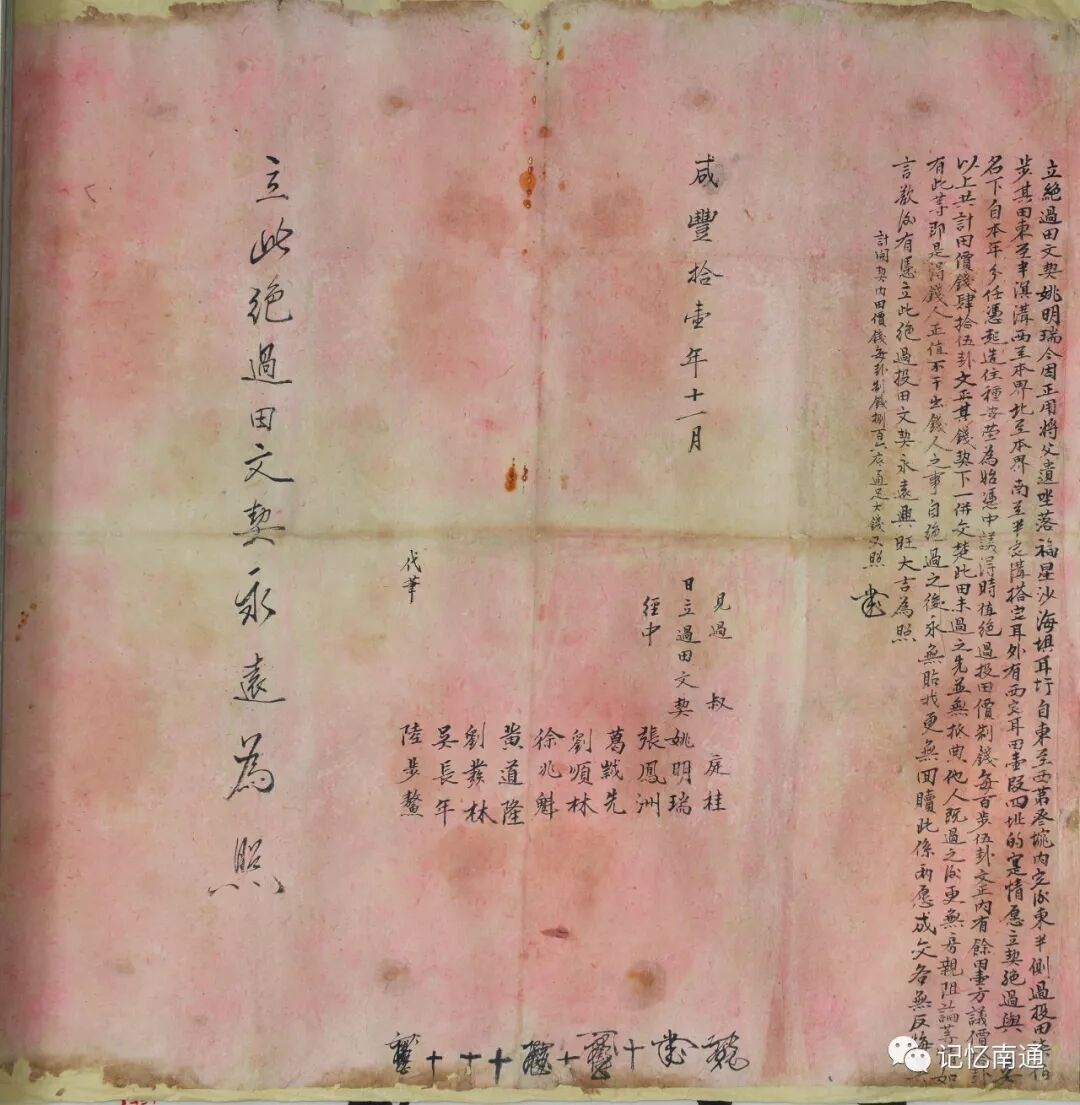 立絕過田文契姚明瑞今因正用將父遺坐落福星沙海壩耳圩自東至西第叁𡎚內宅後東半側過投田壹佰
步其田東至半濱溝西至本界北至本界南至半宅溝搭宅耳外有西宅耳田壹段四址的寔情愿立契絕過與
名下自本年夕任憑起造住種安塋為始憑中議得時值絕過投田價制錢每百步伍卦文正內有餘田壹方議價
以上共計田價錢肆拾伍卦文正其錢契下一併交楚此田未過之先並無抵典他人既過之後更無房親阻論等如
有此等即是得錢人正值不干出錢人之事自絕過之後永無貼找更無回贖此係兩愿成交各無反悔
言欲後有憑立此絕過投田文契永遠興旺大吉為照
計開契內田價錢每卦制錢捌百六底通足大錢又照
咸豐拾壹年十一月
見過 叔 庭桂
日立過田文契姚明瑞
經中 張鳳洲
葛戩先
劉順林
徐兆魁
黃道隆
劉發林
吳長年
代筆 陸步鰲
立此絕過田文契永遠為照
记忆南通